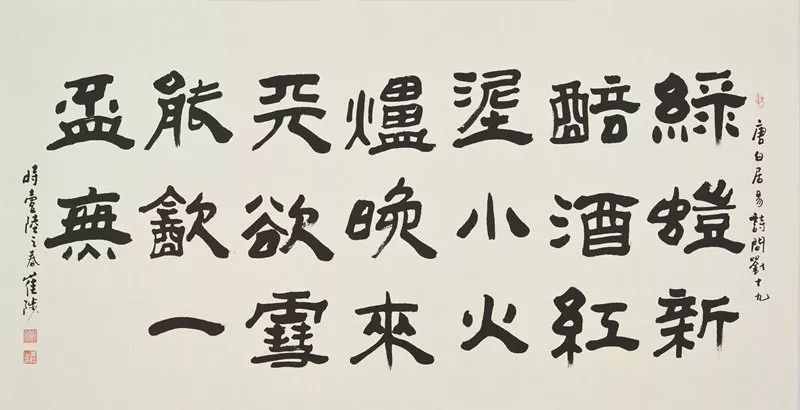 唐白居易詩問劉十九
綠螘新
醅酒紅
埿小火
爐晚來
天欲雪
能㱃一
盃無
時壹陸之春崔陟